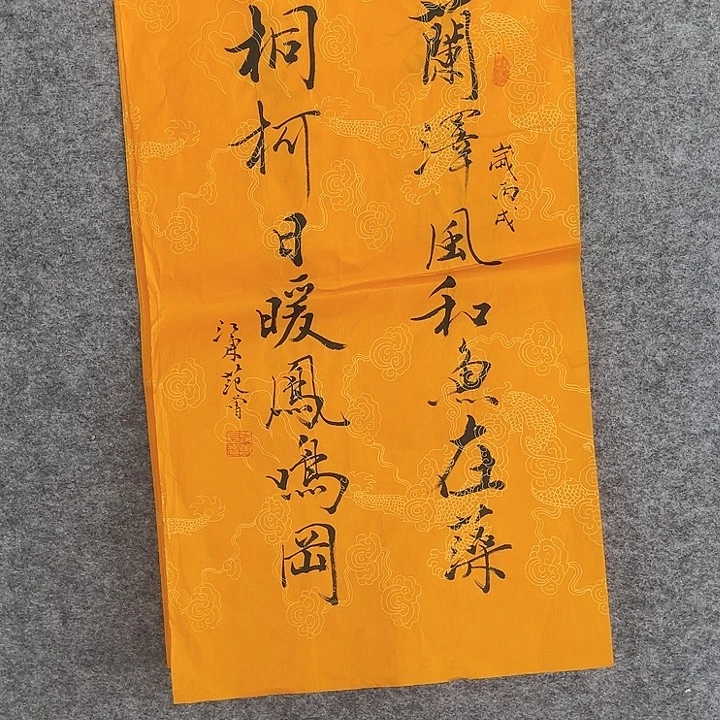 蘭澤風和魚在藻
歲丙戌
桐柯日暖鳳鳴岡
江東范甯